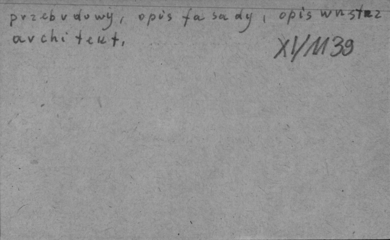 przebudowy, opis fasady, opis wnętrz
architekt.
XI/1139